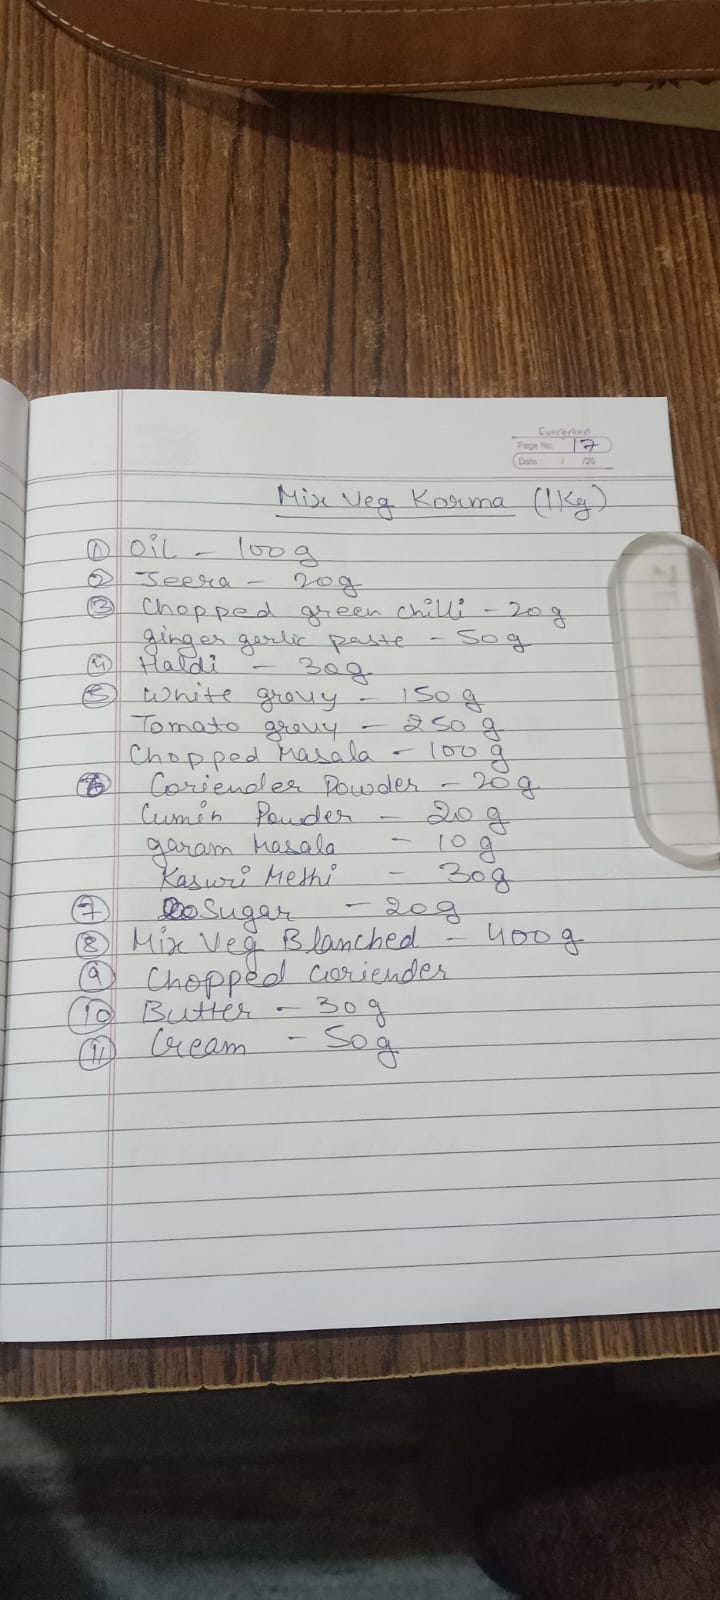 Evergreen
Page No. 17
Date: / /20
Mix Veg Korma (1Kg)
① Oil - 100g
② Jeera - 20g
③ Chopped green chilli - 20g
ginger garlic paste - 50g
④ Haldi - 30g
⑤ White gravy - 150g
Tomato gravy - 250 g
Chopped Masala - 100g
⑥ Coriender Powder - 20g
Cumin Powder - 20 g
garam Masala - 10g
Kasuri Methi - 30g
⑦ Sugar - 20g
⑧ Mix Veg Blanched - 400g
⑨ Chopped coriender
⑩ Butter - 30g
⑪ Cream - 50g